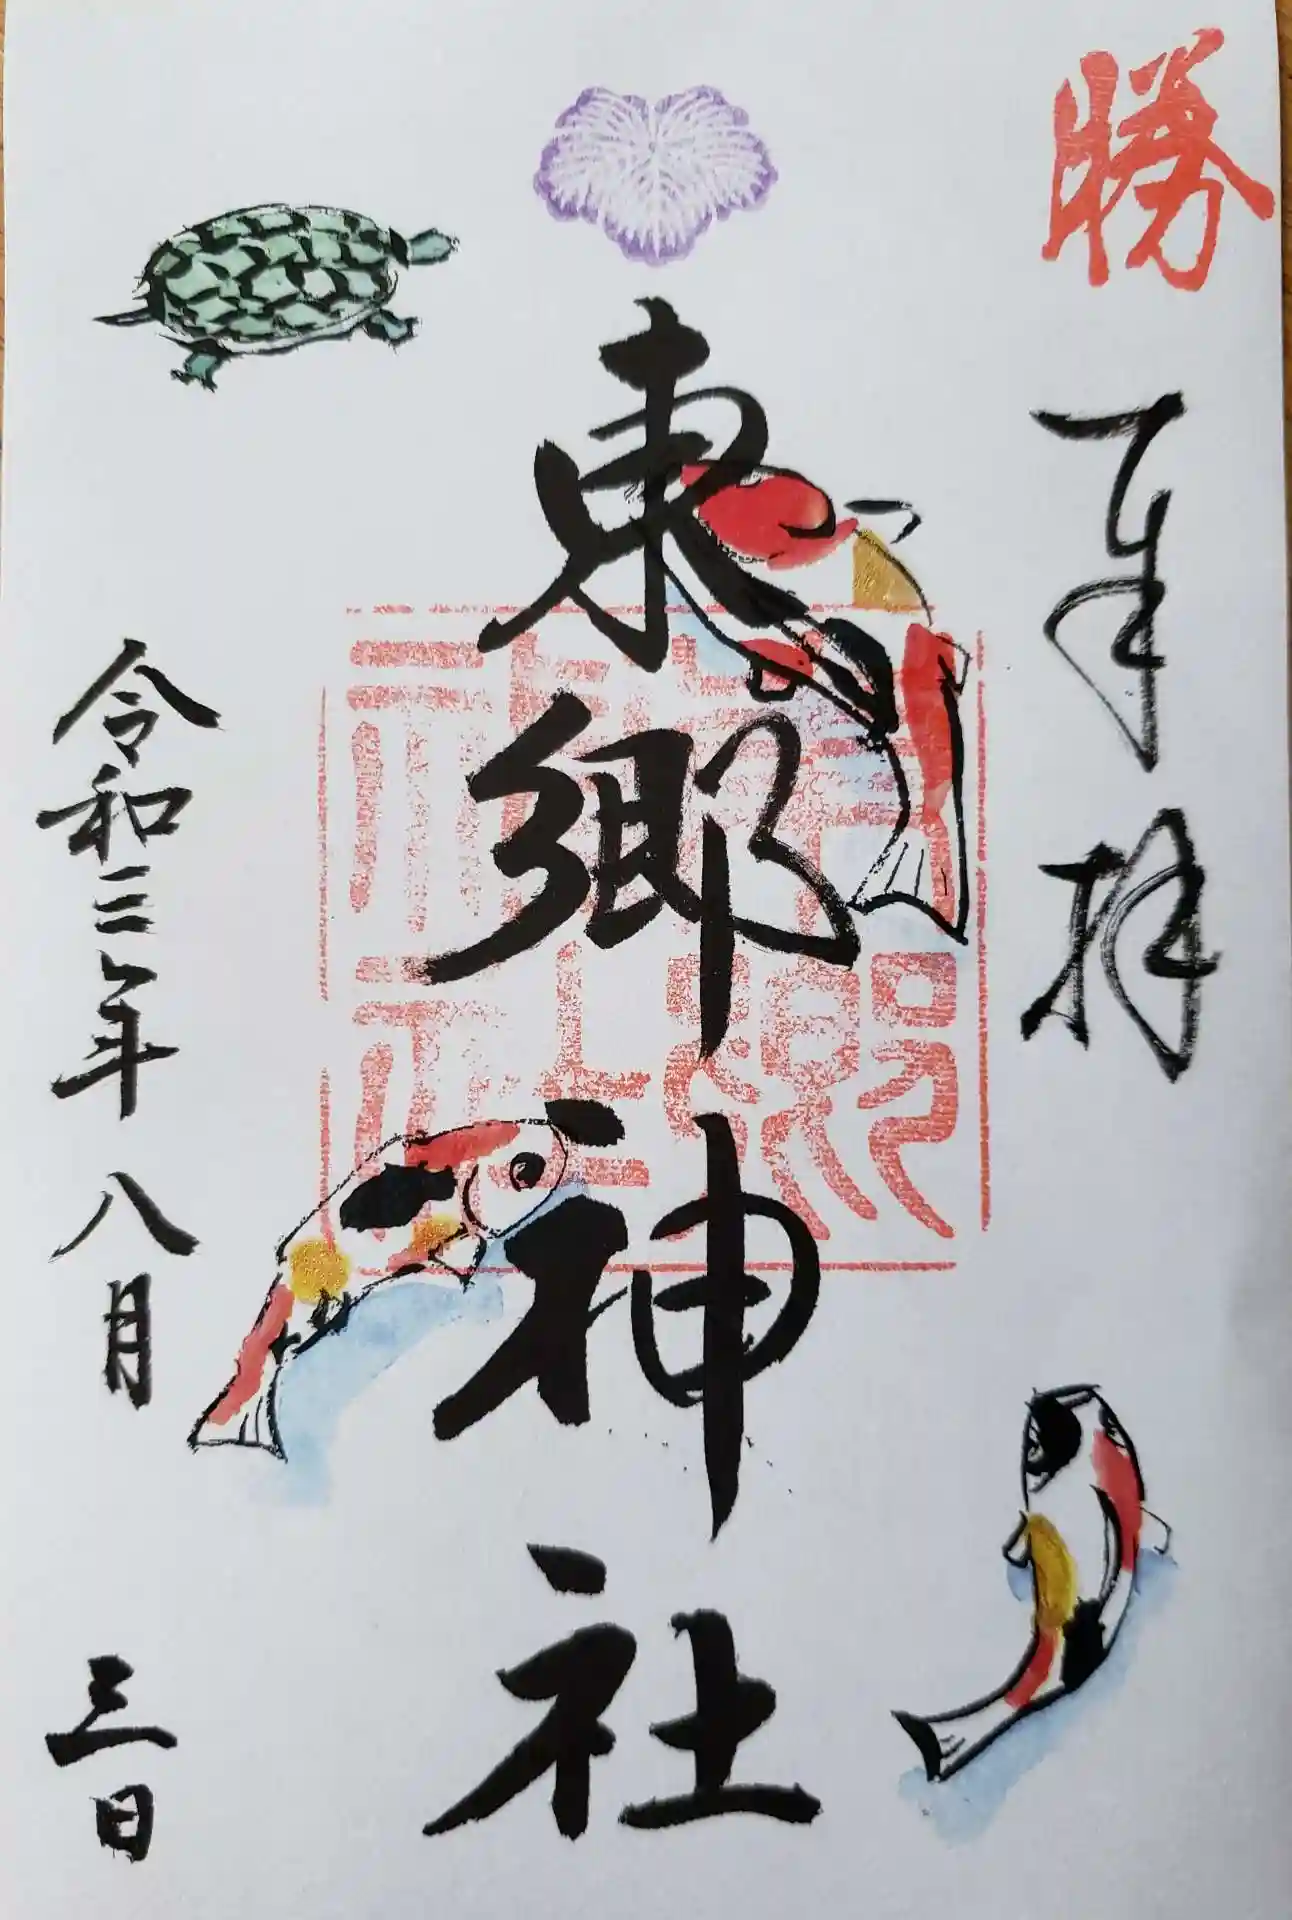 勝
奉拝
東郷神社
東郷神社
令和三年八月三日